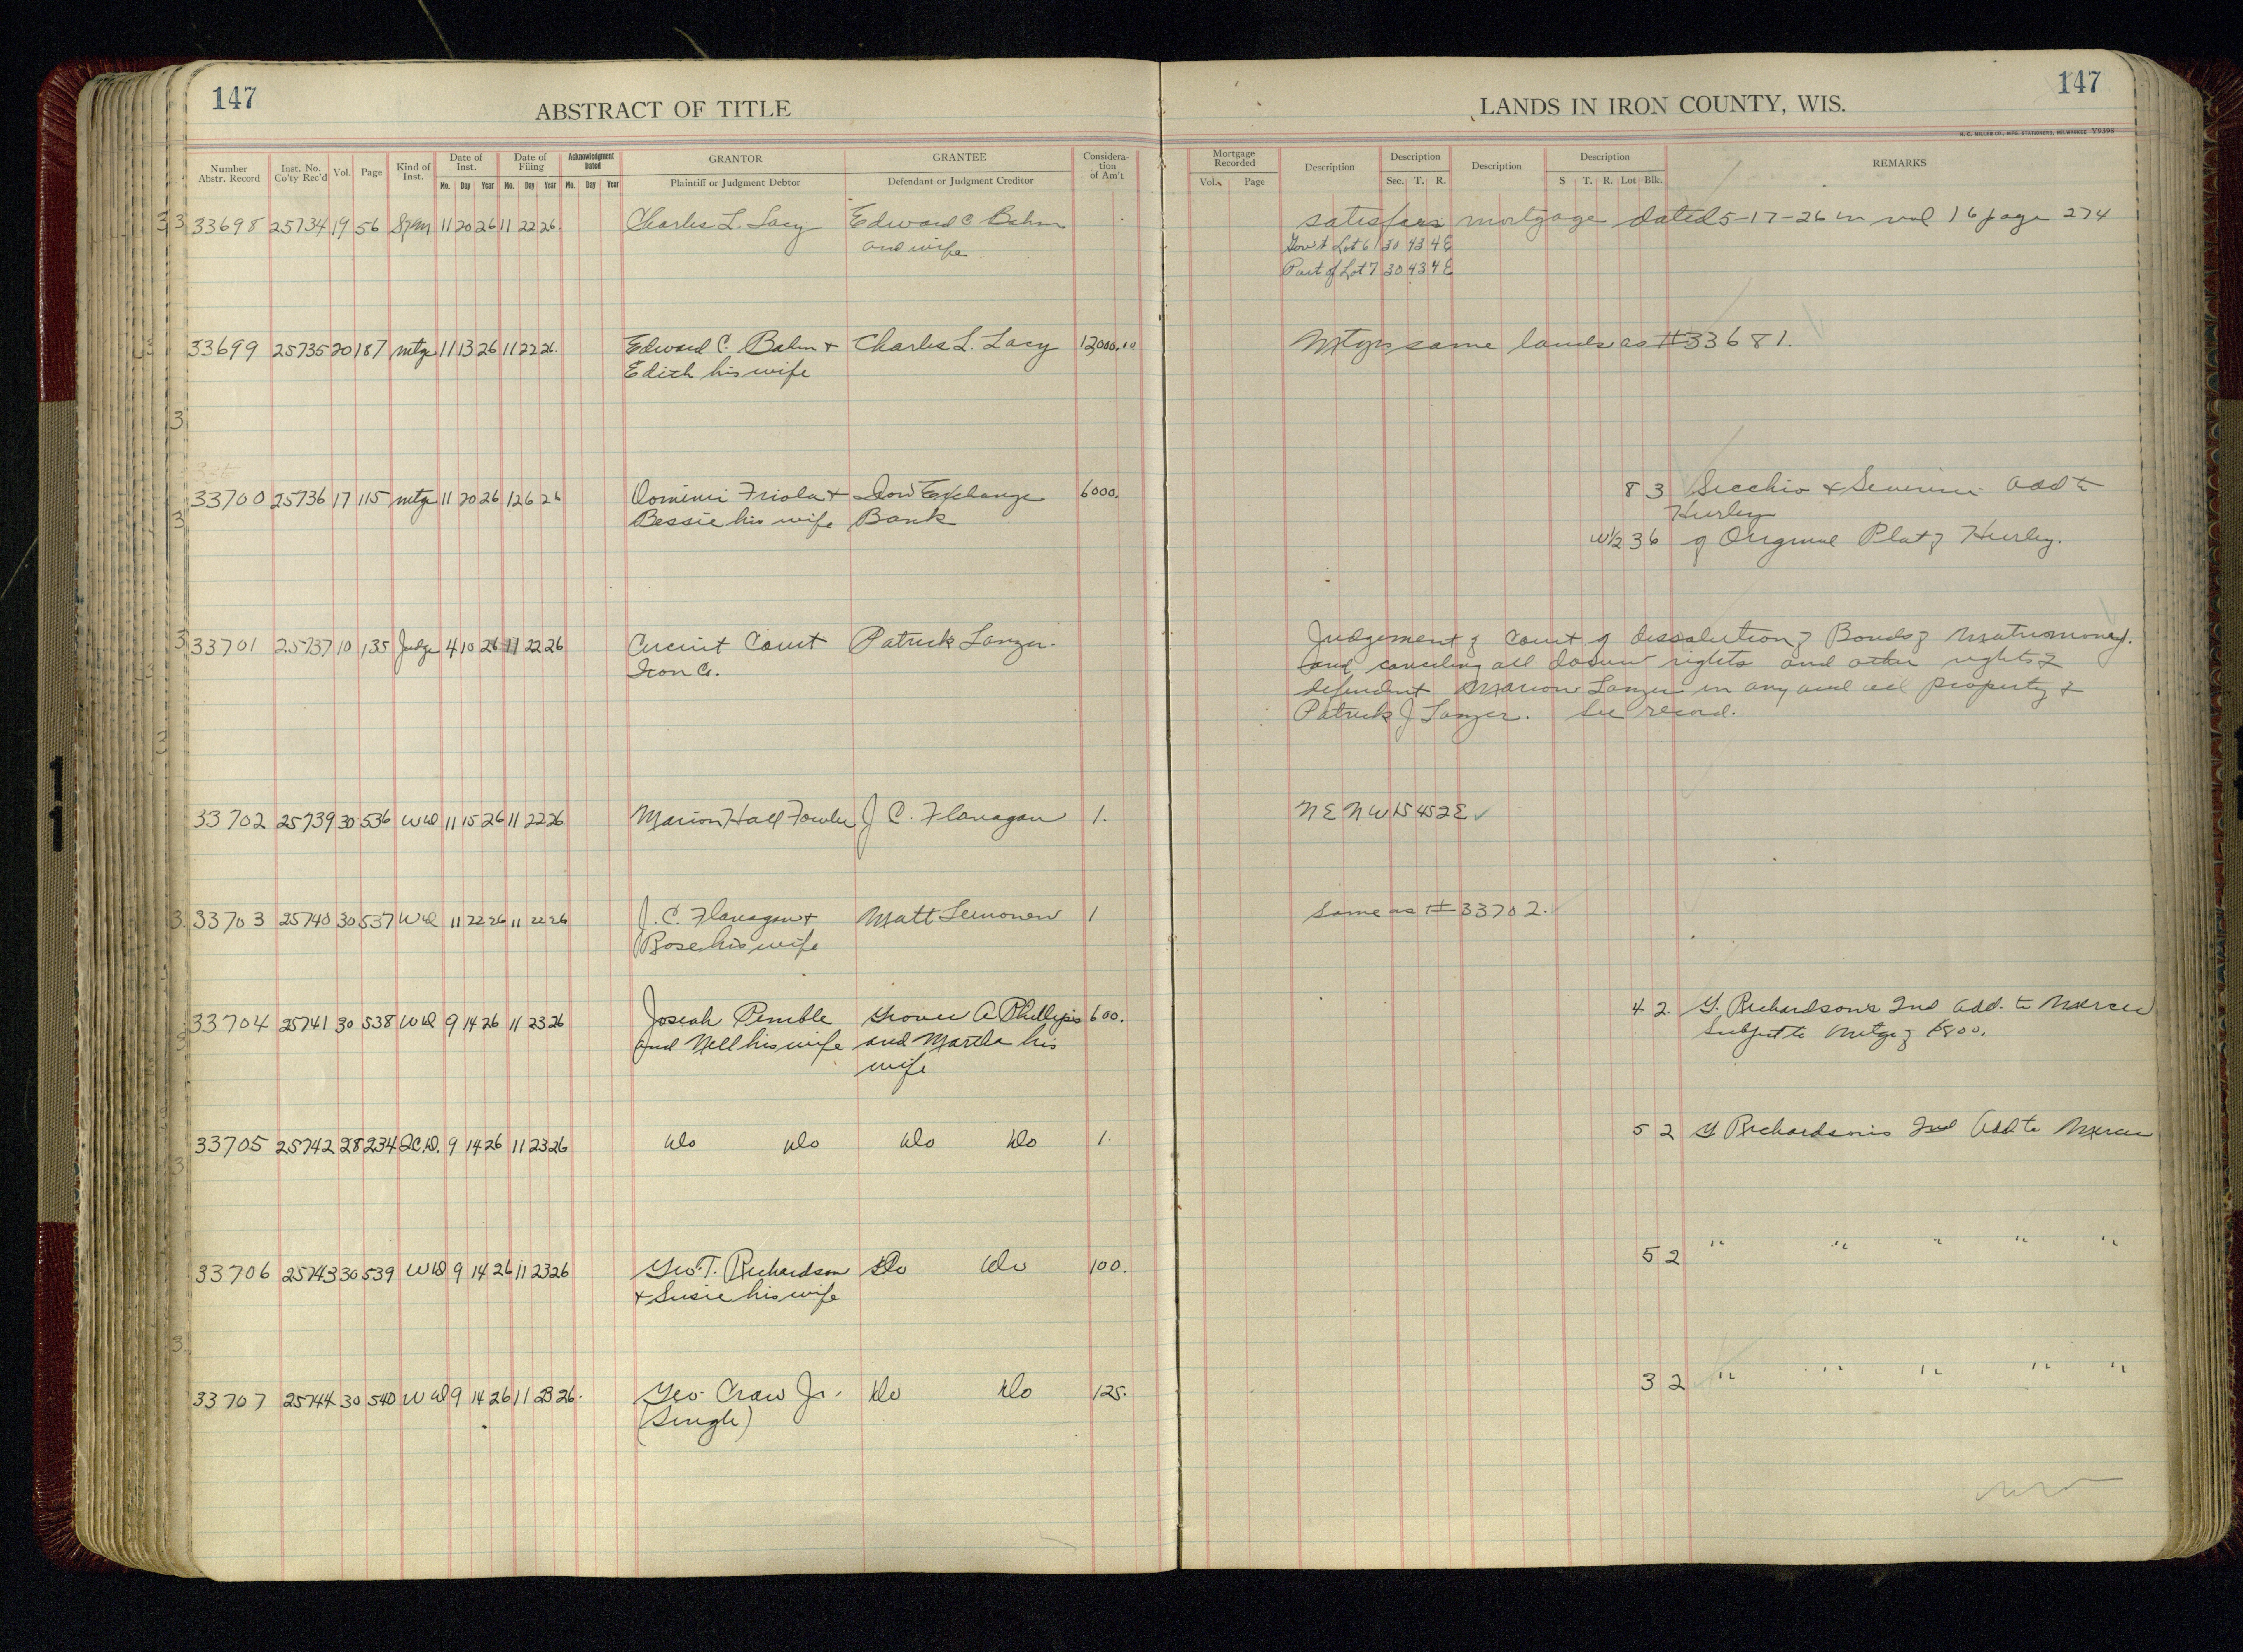 147
ABSTRACT OF TITLE
LANDS IN IRON COUNTY, WIS.
147
H. C. MILLER CO., MFG. STATIONERS, MILWAUKEE Y9398
Number Abstr. Record | Inst. No. Co'ty Rec'd | Vol. | Page | Kind of Inst. | Date of Inst. Mo. Day Year | Date of Filing Mo. Day Year | Acknowledgment Dated Mo. Day Year | GRANTOR Plaintiff or Judgment Debtor | GRANTEE Defendant or Judgment Creditor | Considera-tion of Am't | Mortgage Recorded Vol. Page | Description | Description Sec. T. R. | Description | Description S T. R. Lot Blk. | REMARKS
33698 25734 19 56 11 20 26 11 22 26. Charles L. Lacy Edward C Bahm satisfies mortgage dated 5-17-26 in vol 16 page 274
and wife Gov't Lot 6 30 43 4E
Part of Lot 7 30 43 4E
33699 25735 20 187 mtge 11 13 26 11 22 26. Edward C. Bahm + Charles L. Lacy 12000.00 Mtgs same lands as #33681.
Edith his wife
33700 25736 17 115 mtge 11 20 26 126 26 Friola + Iron Exchange 6000. 8 3 Secchio & Severini add to
Bessie his wife Bank Hurley
W1/2 3 6 of Original Plat of Hurley.
33701 25737 10 135 Judge 4 10 26 11 22 26 Circuit Court Patrick Lanzer. Judgement of Court of dissolution of Bonds of Matrimoney.
Iron Co. and canceling all dower rights and other rights of
defendent Marion Lanzer in any and all property of
Patrick J Lanzer. See record.
33702 25739 30 536 WD 11 15 26 11 22 26. Marion Hall Fowler J C. Flanagan 1. NE NW 15 45 2E ✓
33703 25740 30 537 WD 11 22 26 11 22 26 J. C. Flanagan + Matt 1 Same as #33702.
Rose his wife
33704 25741 30 538 WD 9 14 26 11 23 26 Josiah Pemble Grover A Phillips 600. 4 2. G. Richardson's 2nd Add. to Mercer
and Nell his wife and Martha his Subject to Mtge of
wife
33705 25742 28 234 QC.D. 9 14 26 11 23 26 Do Do Do Do 1. 5 2 G Richardson's 2nd Add to Mercer
33706 25743 30 539 WD 9 14 26 11 23 26 Geo T. Richardson Do Do 100. 5 2 " " " " "
+ Susie his wife
33707 25744 30 540 WD 9 14 26 11 23 26. Geo Craw Jr. Do Do 125. 3 2 " " " " "
(Single)